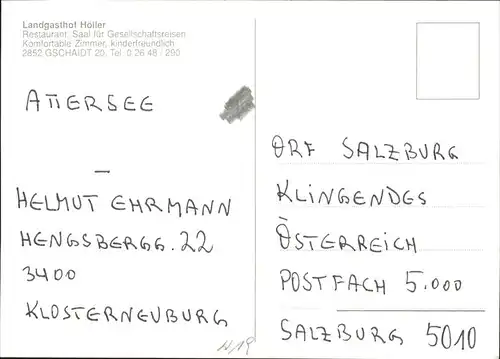 Landgasthof Höller
Restaurant, Saal für Gesellschaftsreisen
Komfortable Zimmer, kinderfreundlich
2852 GSCHAIDT 20, Tel. 0 26 48 / 290
ATTERSEE
–
HELMUT EHRMANN
HENGSBERGG. 22
3400
KLOSTERNEUBURG
ORF SALZBURG
KLINGENDES
ÖSTERREICH
POSTFACH 5.000
SALZBURG 5010